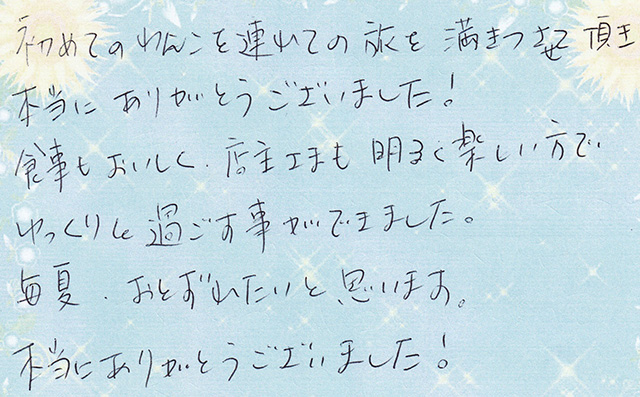 初めてのわんこを連れての旅を満きつさせて頂き
本当にありがとうございました!
食事もおいしく、店主さまも明るく楽しい方で
ゆっくりと過ごす事ができました。
毎夏、おとずれたいと思います。
本当にありがとうございました!